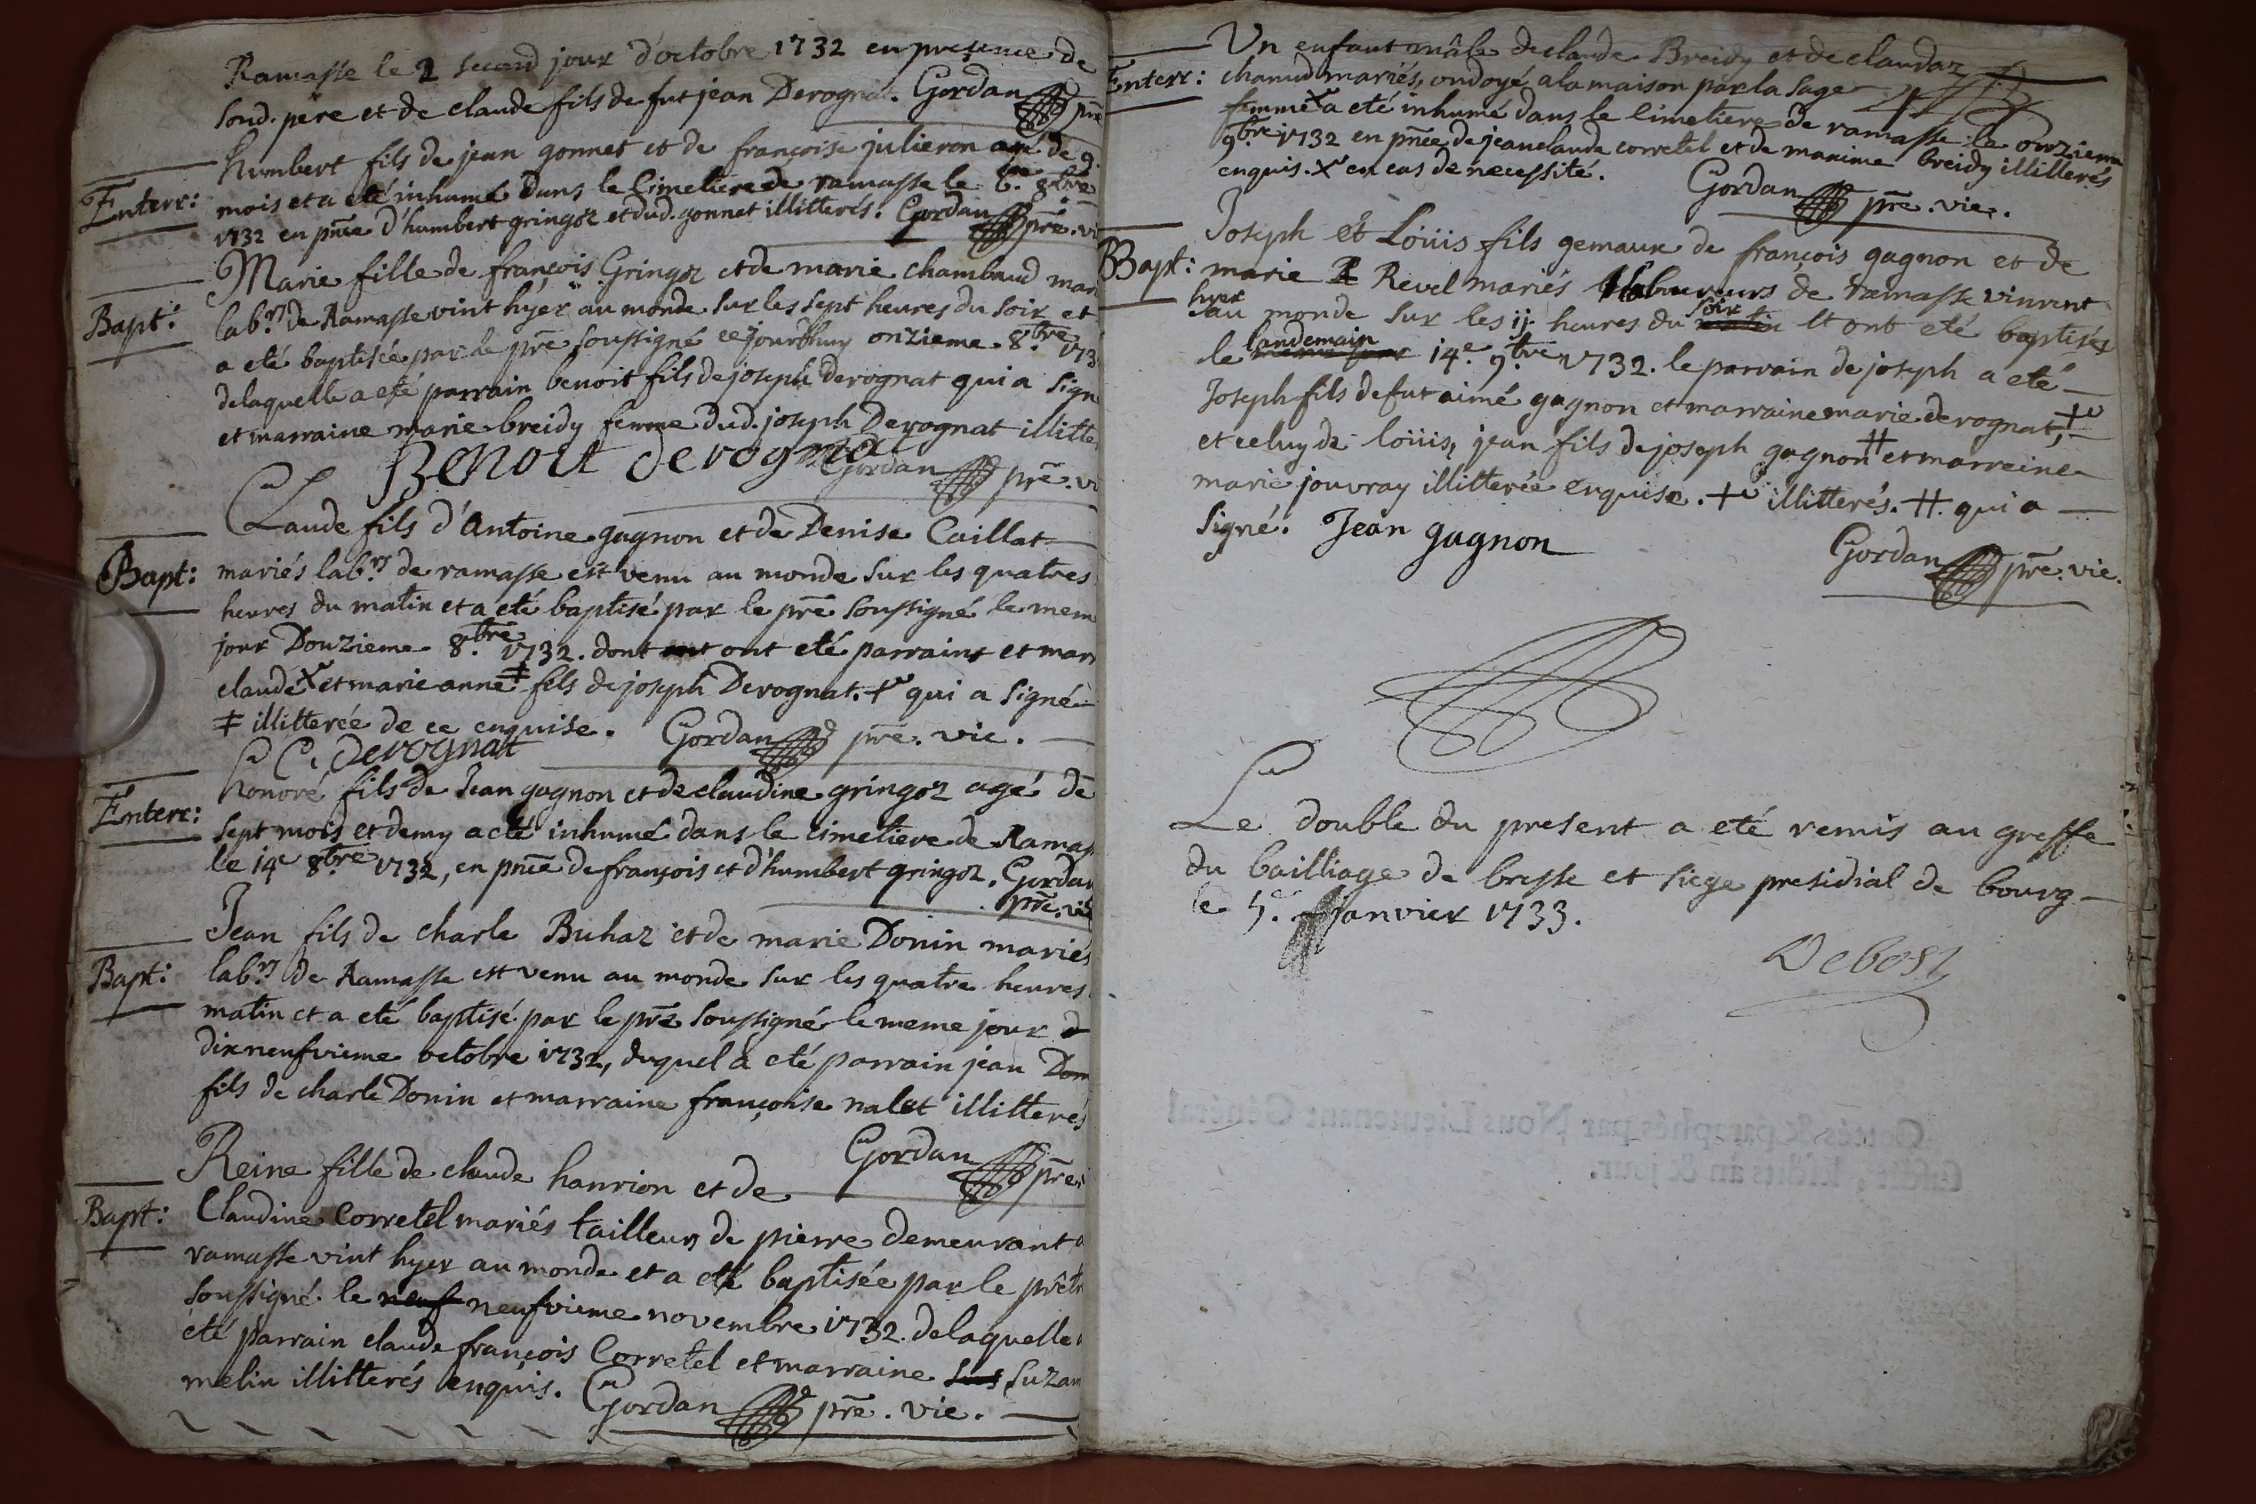 Ramasse le 2 second jour d'octobre 1732 en presence de
soud. pere et de claude fils de fut jean Derognat. Gordan pre
humbert fils de jean gonnet et de françoise julieron agé de 9.
Enterr: mois et a eté inhumé dans le cimetiere de ramasse le 6.e 8.bre
1732 en pnce d'humbert gringoz et dud. gonnet illitterés. Gordan pre. vi
Marie fille de françois Gringoz et de marie chambaud mari
Bapt: lab.rs de Ramasse vint hyer au monde sur les sept heures du soir et
a eté baptisée par le pre soussigné cejourdhuy onzieme 8.bre 173
delaquelle a eté parrain benoit fils de joseph Derognat qui a sign
et marraine marie breidy femme dud. joseph Derognat illitte
Benoit derognat Gordan pre. vi
Claude fils d'Antoine gagnon et de Denise Caillat
Bapt: mariés lab.rs de ramasse est venu au monde sur les quatres
heures du matin et a eté baptisé par le pre soussigné le mem
jour Douzieme 8.bre 1732. dont ont eté parrains et marr
claude + et marie anne ‡ fils de joseph Derognat. + qui a signé
‡ illitterée de ce enquise. Gordan pre. vic.
C. Derognat
honoré fils de Jean gagnon et de claudine gringoz agé de
Enterr: sept mois et demy a eté inhumé dans le cimetiere de Ramas
le 14e 8.bre 1732, en pnce de françois et d'humbert gringoz. Gordan
pre. vic
Jean fils de charle Buhaz et de marie Donin mariés
Bapt: lab.rs de Ramasse est venu au monde sur les quatre heures
matin et a eté baptisé par le pre soussigné le meme jour d
dixneufvieme octobre 1732, duquel a eté parrain jean Don
fils de charle Donin et marraine françoise nalet illitterés
Gordan pre.
Reine fille de claude hanrion et de
Bapt: Claudine Corretel mariés tailleurs de pierre demeurant a
ramasse vint hyer au monde et a eté baptisée par le prêtr
soussigné le neuf neufvieme novembre 1732. delaquelle a
eté parrain claude françois Corretel et marraine sus suzan
melin illitterés enquis. Gordan pre. vic.
Un enfant mâle de claude Breidy et de claudaz
Enterr: chanud mariés, ondoyé a la maison par la sage
femme + a eté inhumé dans le cimetiere de ramasse le onzieme
9.bre 1732 en pnce de jeanclaude corretel et de manime breidy illitterés
enquis. + en cas de necessité. Gordan pre. vic.
Joseph et Loüis fils gemaux de françois gagnon et de
Bapt: marie R Revel mariés laboureurs de ramasse vinrent
hyer au monde sur les ij heures du matin soir et ont eté baptisés
le landemain 14.e 9.bre 1732. le parrain de joseph a eté
Joseph fils de fut aimé gagnon et marraine marie derognat, +
et celuy de loüis, jean fils de joseph gagnon ‡ et marreine
marie jouvray illitterée enquise. + illitterés. ‡. qui a
signé. Jean gagnon
Gordan pre. vic.
Le double du present a eté remis au greffe
du bailliage de bresse et siege presidial de bourg
le 5.e Janvier 1733.
Debost